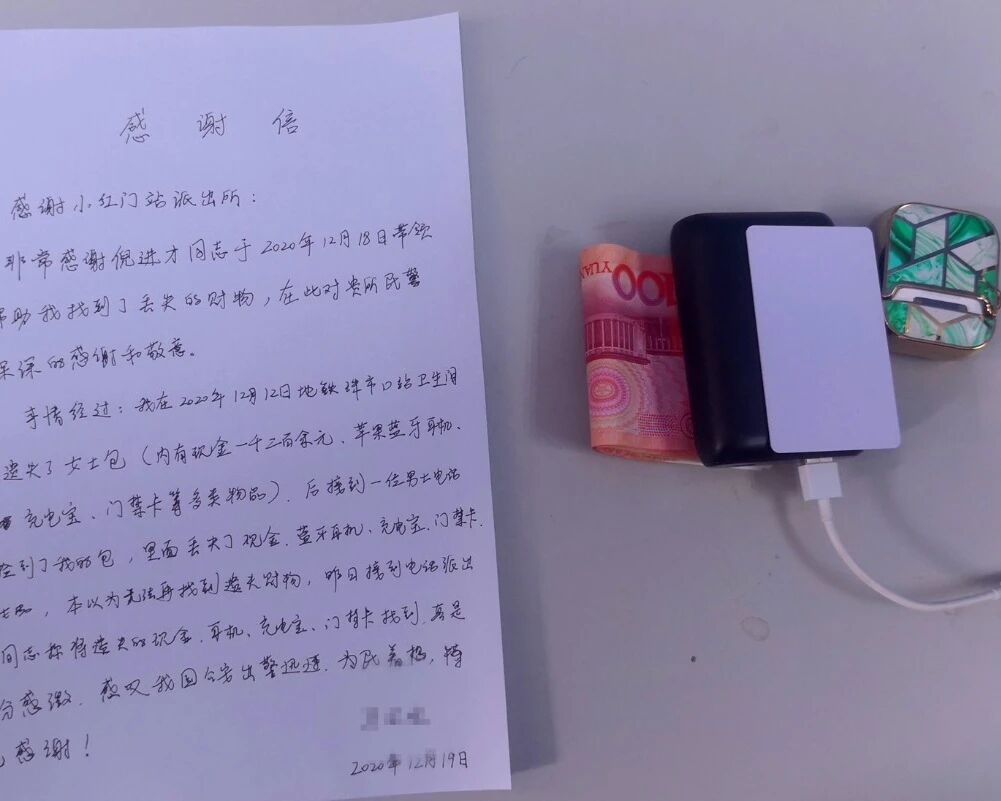 感谢信
感谢小红门站派出所：
非常感谢倪进才同志于2020年12月18日带领
帮助我找到了丢失的财物，在此对贵所民警
深深的感谢和敬意。
事情经过：我在2020年12月12日地铁珠市口站卫生间
遗失了女士包（内有现金一千三百余元、苹果蓝牙耳机、
充电宝、门禁卡等多类物品）．后接到一位男士电话
捡到了我的包，里面丢失了现金、蓝牙耳机、充电宝、门禁卡．
，本以为无法再找到遗失财物，昨日接到电话派出
同志称将遗失的现金、耳机、充电宝、门禁卡找到．真是
分感激．感叹我国公安出警迅速．为民着想，特
感谢！
2020年12月19日
100
YUAN